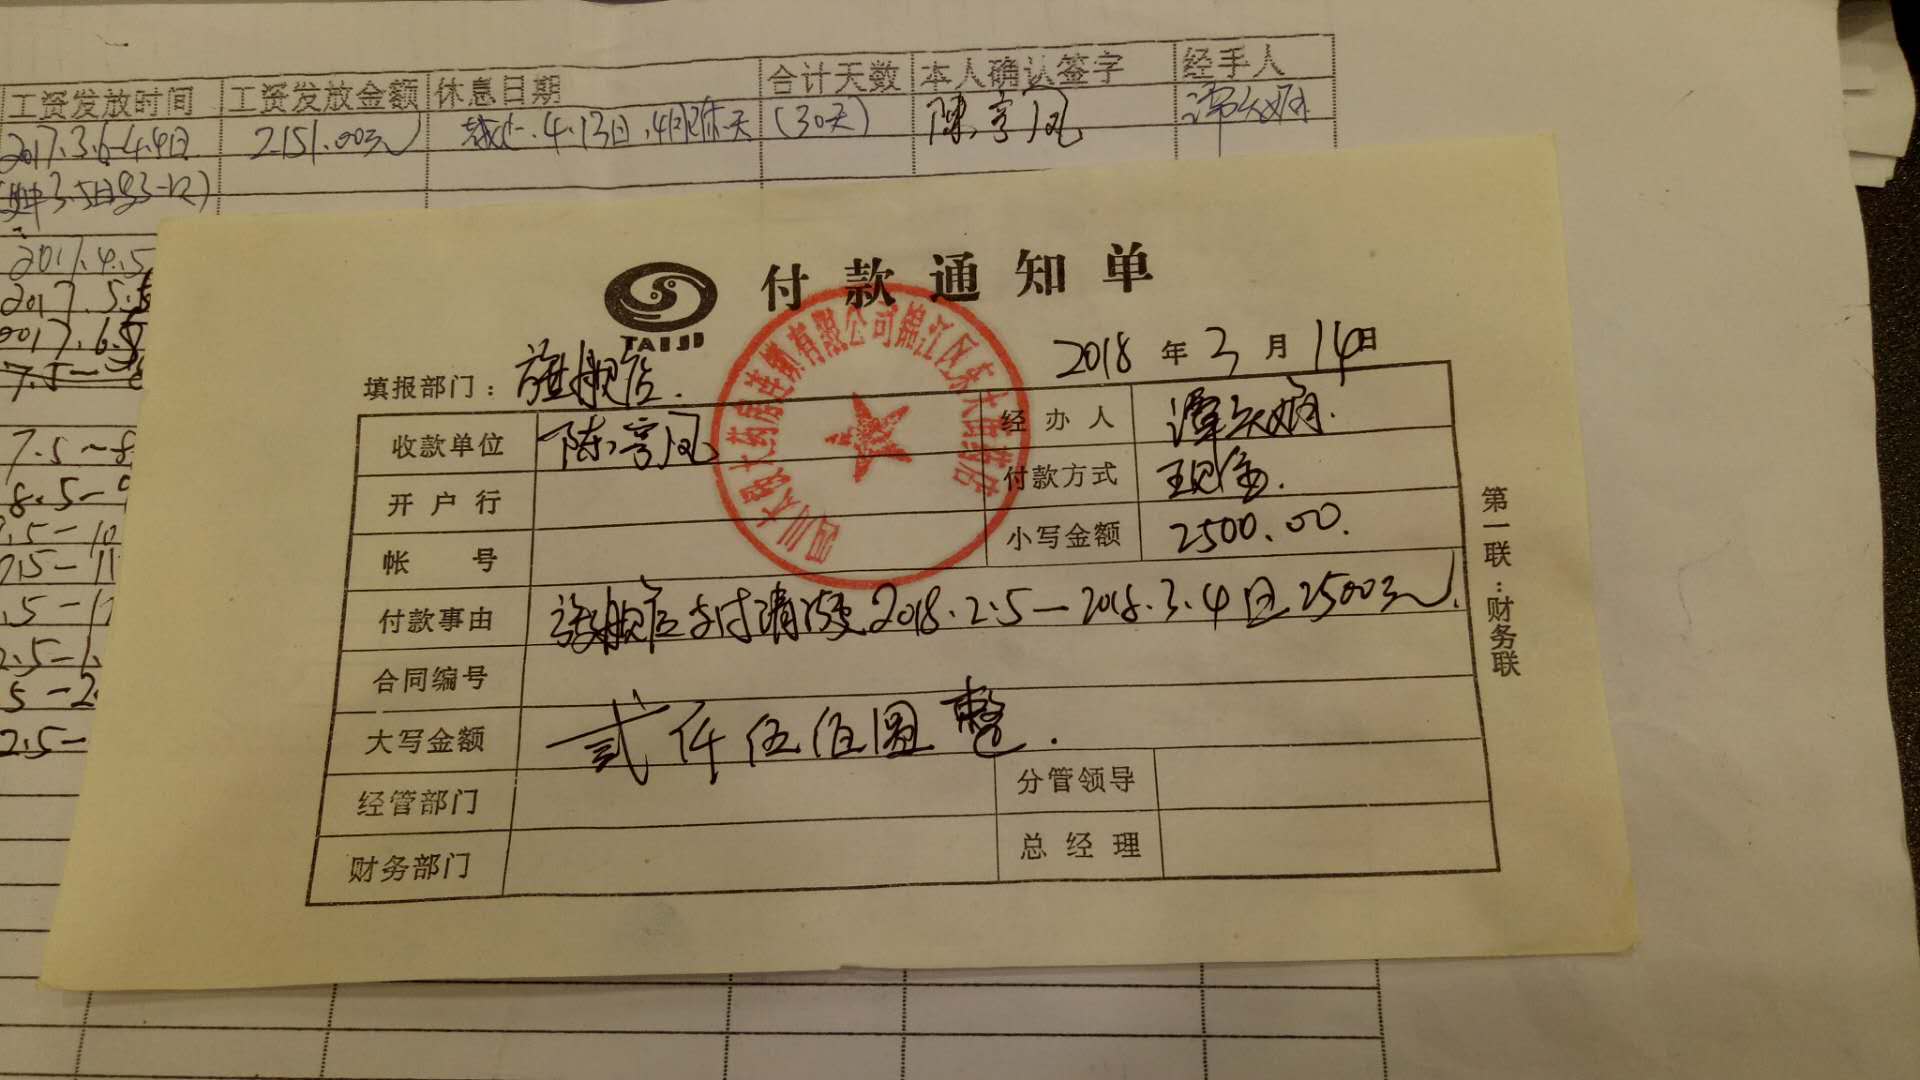 工资发放时间 工资发放金额 休息日期 合计天数 本人确认签字 经手人
2017.3.6-4.4日 2151.00元 4.13日 (30天)
2017.4.5
2017.5.5
2017.6.5
7.5-
7.5~8
8.5-9
.5-10
.5-11
.5-1
2.5-1.
5-2.
2.5-
付款通知单
TAIJI
2018 年 3 月 14日
填报部门: 旗舰店.
四川太极大药房连锁有限公司锦江区东大街药店
收款单位 经办人
开户行 付款方式 现金.
帐号 小写金额 2500.00.
付款事由 旗舰店支付清洁费2018.2.5-2018.3.4日2500元.
合同编号
大写金额 贰仟伍佰圆整.
经管部门 分管领导
财务部门 总经理
第一联:财务联